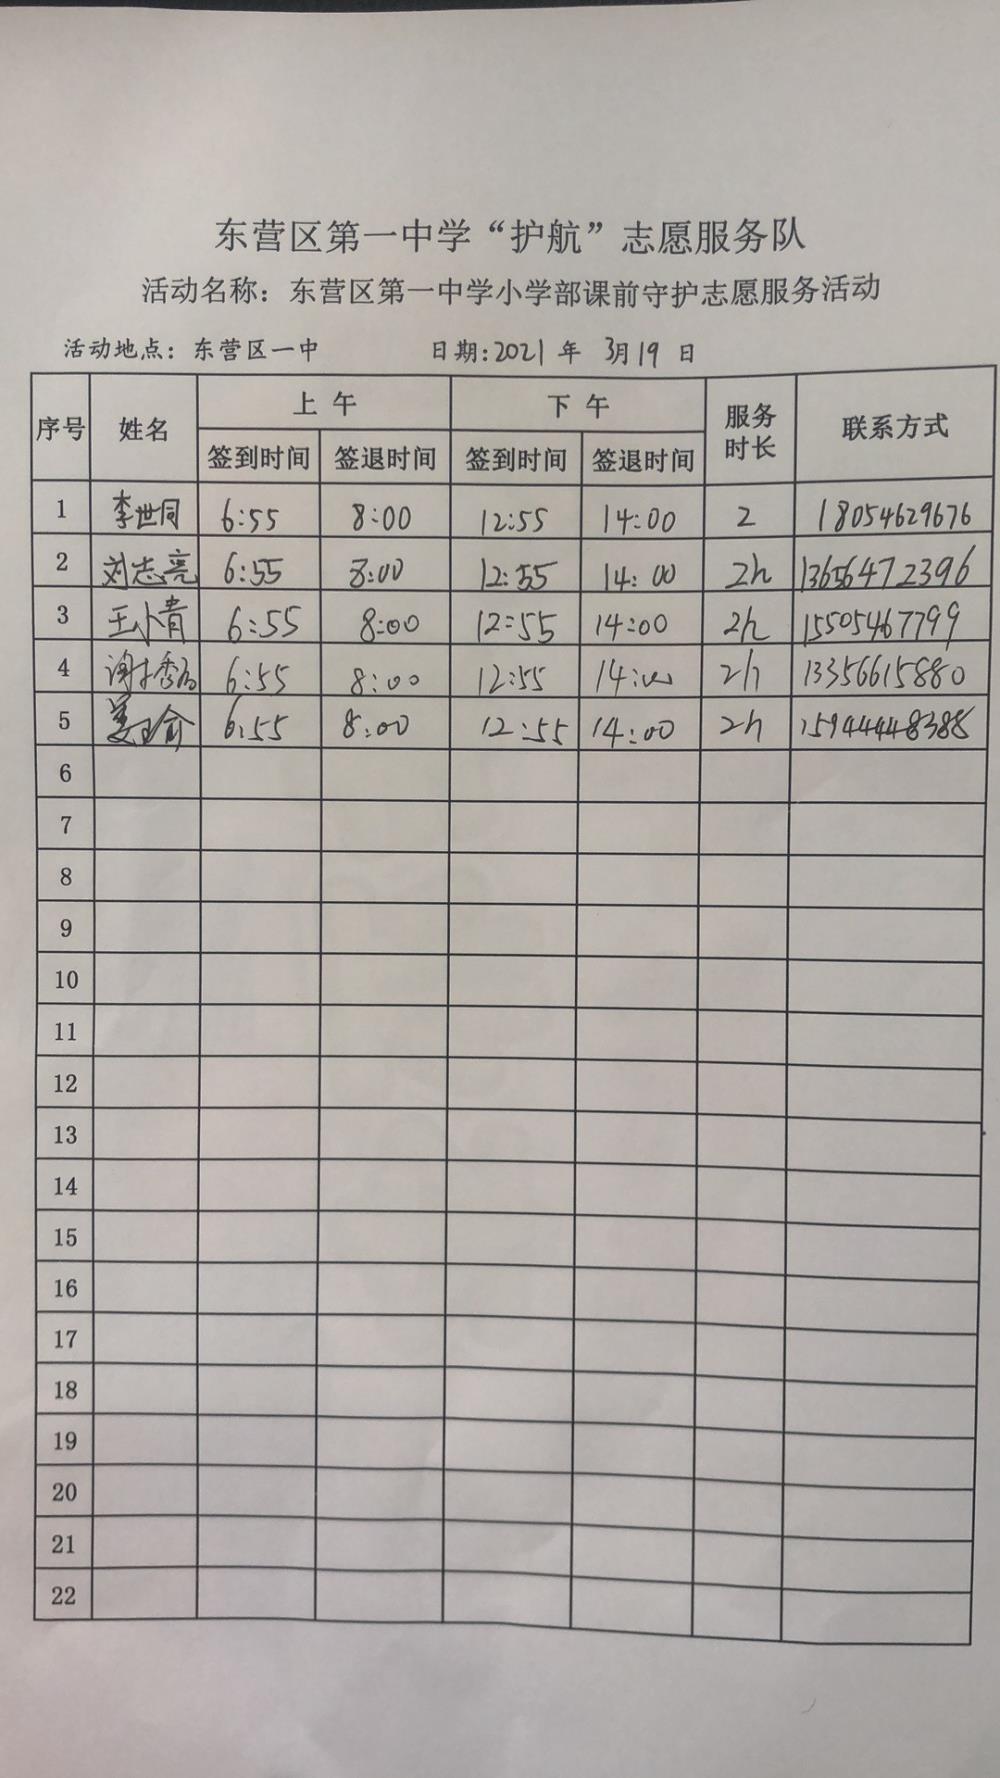 东营区第一中学“护航”志愿服务队
活动名称：东营区第一中学小学部课前守护志愿服务活动
活动地点：东营区一中 日期:2021年 3月19日
序号 姓名 上 午 下 午 服务时长 联系方式
签到时间 签退时间 签到时间 签退时间
1 李世同 6:55 8:00 12:55 14:00 2 18054629676
2 刘志亮 6:55 8:00 12:55 14:00 2h 13656472396
3 王小青 6:55 8:00 12:55 14:00 2h 15505467799
4 谢 6:55 8:00 12:55 14:00 2h 13356615880
5 6:55 8:00 12:55 14:00 2h 15944448388
6
7
8
9
10
11
12
13
14
15
16
17
18
19
20
21
22